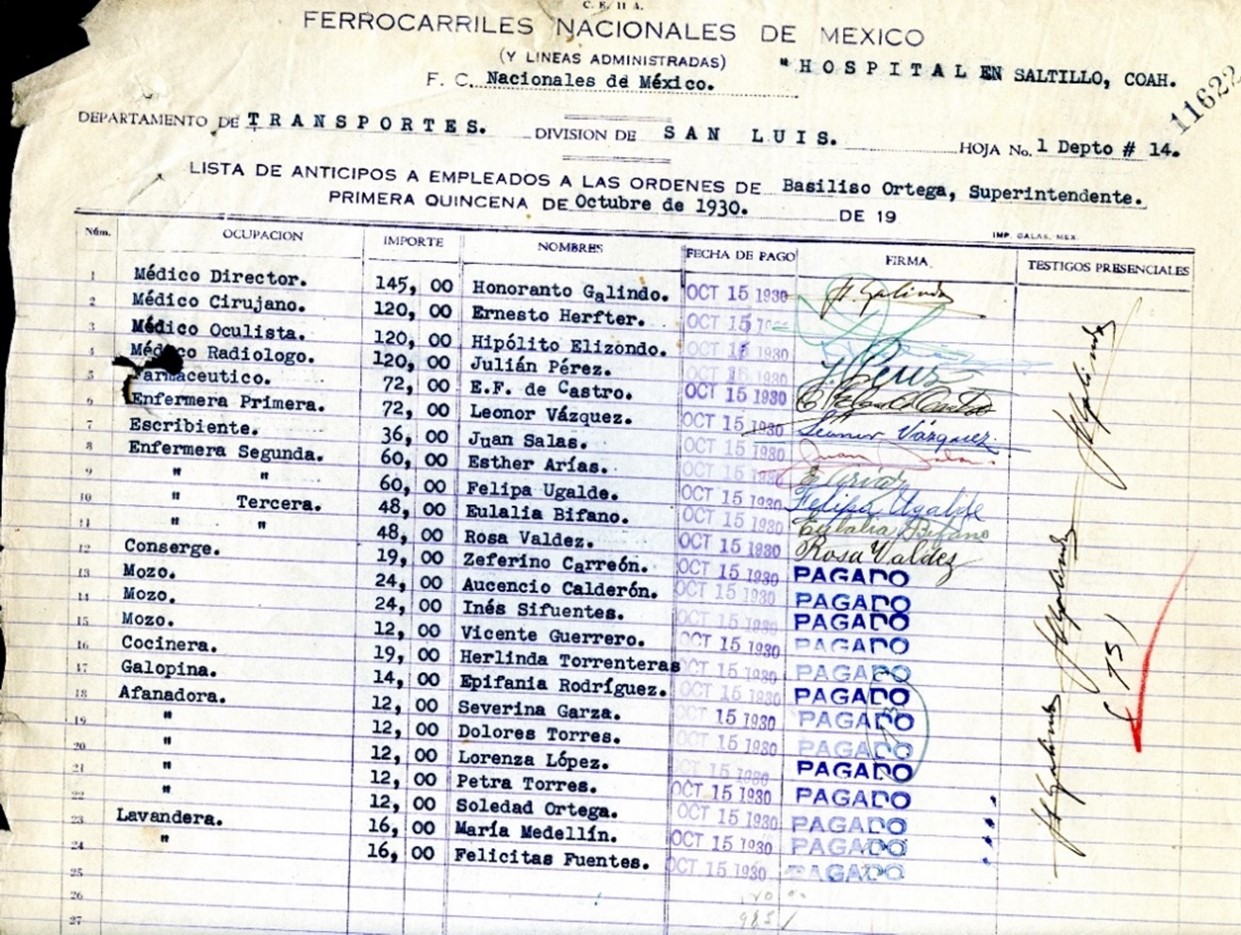 C. E. H A.
FERROCARRILES NACIONALES DE MEXICO
(Y LINEAS ADMINISTRADAS)
"HOSPITAL EN SALTILLO, COAH.
F. C. Nacionales de México.
11622
DEPARTAMENTO DE TRANSPORTES. DIVISION DE SAN LUIS. HOJA No. 1 Depto # 14.
LISTA DE ANTICIPOS A EMPLEADOS A LAS ORDENES DE Basiliso Ortega, Superintendente.
PRIMERA QUINCENA DE Octubre de 1930. DE 19
IMP. GALAS, MEX.
Núm. OCUPACION IMPORTE NOMBRES FECHA DE PAGO FIRMA TESTIGOS PRESENCIALES
1 Médico Director. 145, 00 Honoranto Galindo. OCT 15 1930 H. Galindo
2 Médico Cirujano. 120, 00 Ernesto Herfter. OCT 15 1930
3 Médico Oculista. 120, 00 Hipólito Elizondo. OCT 15 1930
4 Médico Radiologo. 120, 00 Julián Pérez. OCT 15 1930 J. Pérez
5 Farmaceutico. 72, 00 E.F. de Castro. OCT 15 1930
6 Enfermera Primera. 72, 00 Leonor Vázquez. OCT 15 1930 Leonor Vázquez.
7 Escribiente. 36, 00 Juan Salas. OCT 15 1930 Juan Salas.
8 Enfermera Segunda. 60, 00 Esther Arías. OCT 15 1930 E Arías
9 " " 60, 00 Felipa Ugalde. OCT 15 1930 Felipa Ugalde
10 " Tercera. 48, 00 Eulalia Bifano. OCT 15 1930 Eulalia Bifano
11 " " 48, 00 Rosa Valdez. OCT 15 1930 Rosa Valdez
12 Conserge. 19, 00 Zeferino Carreón. OCT 15 1930 PAGADO
13 Mozo. 24, 00 Aucencio Calderón. OCT 15 1930 PAGADO
14 Mozo. 24, 00 Inés Sifuentes. OCT 15 1930 PAGADO
15 Mozo. 12, 00 Vicente Guerrero. OCT 15 1930 PAGADO
16 Cocinera. 19, 00 Herlinda Torrenteras OCT 15 1930 PAGADO
17 Galopina. 14, 00 Epifania Rodríguez. OCT 15 1930 PAGADO
18 Afanadora. 12, 00 Severina Garza. OCT 15 1930 PAGADO
19 " 12, 00 Dolores Torres. OCT 15 1930 PAGADO
20 " 12, 00 Lorenza López. OCT 15 1930 PAGADO
21 " 12, 00 Petra Torres. OCT 15 1930 PAGADO
22 " 12, 00 Soledad Ortega. OCT 15 1930 PAGADO
23 Lavandera. 16, 00 María Medellín. OCT 15 1930 PAGADO
24 " 16, 00 Felicitas Fuentes. OCT 15 1930 PAGADO
25
26
27
H Galindo
H Galindo
H Galindo